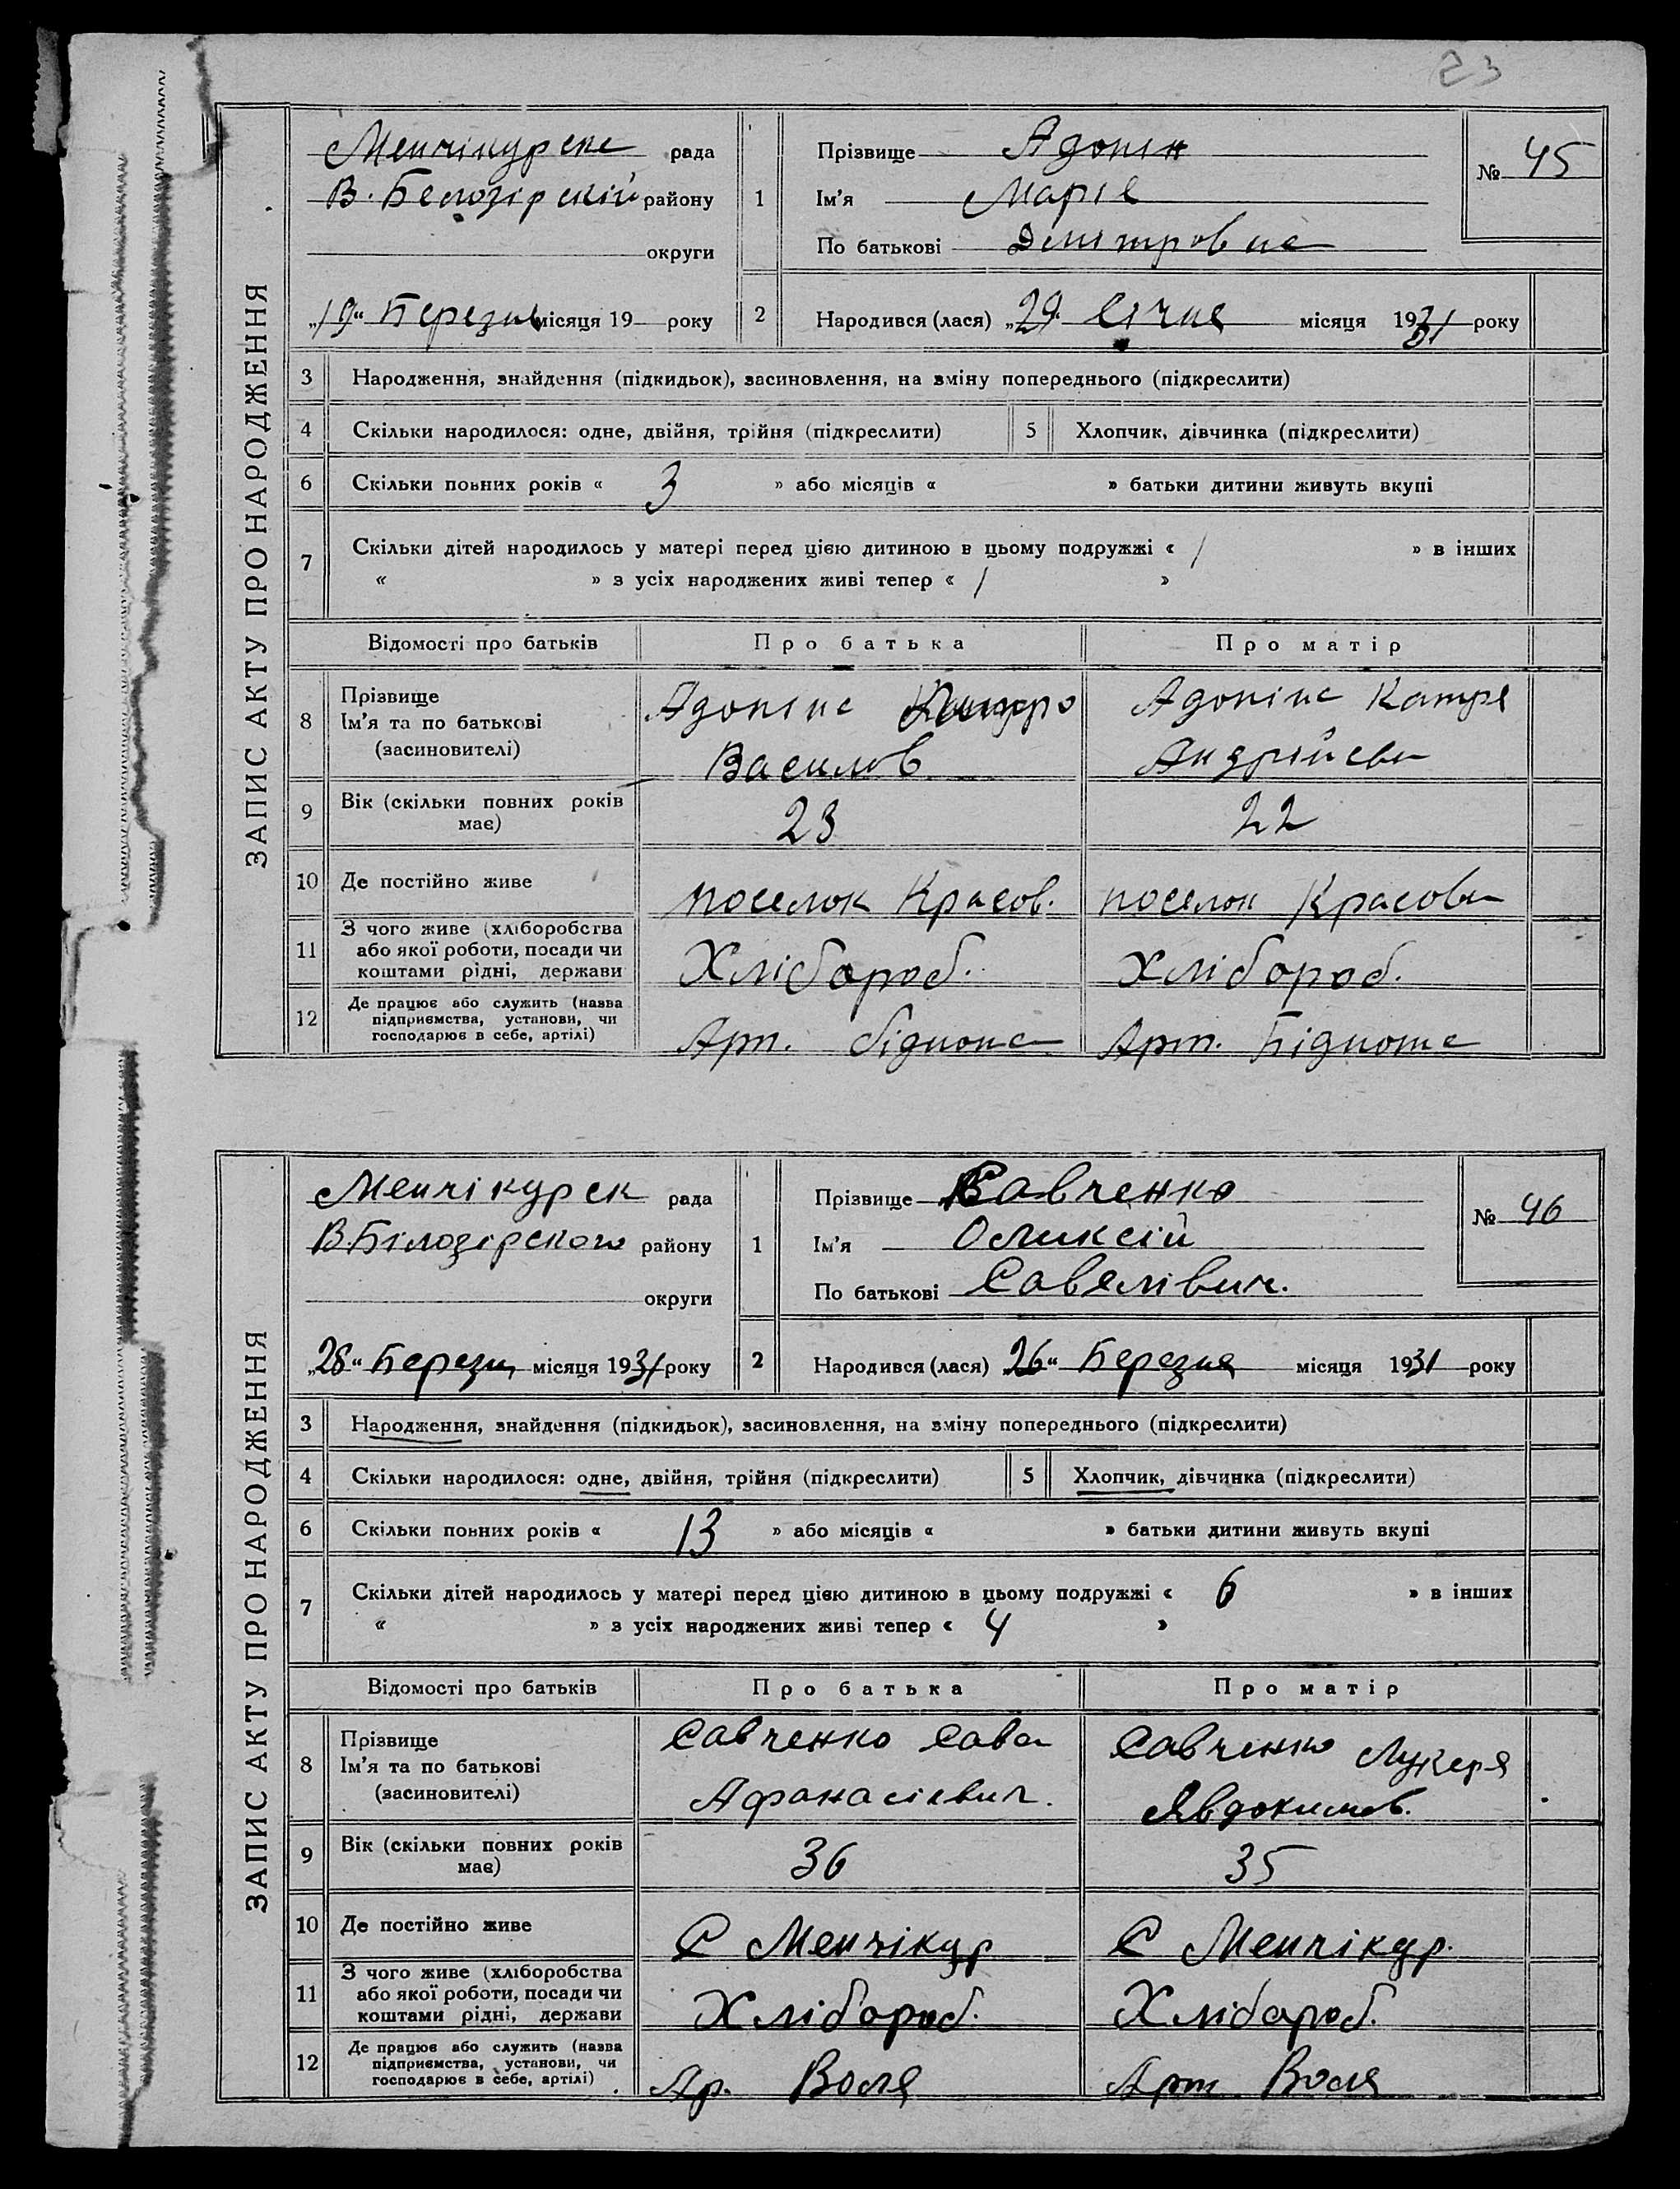 23
ЗАПИС АКТУ ПРО НАРОДЖЕННЯ
Менчікурска рада
В. Белозірскій району
округи
„19“ Березня місяця 19 року
1
Прізвище Адонін
Ім'я Марія
По батькові Дмитровна
№ 45
2
Народився (лася) „29“ січня місяця 1931 року
3 Народження, знайдення (підкидьок), засиновлення, на зміну попереднього (підкреслити)
4 Скільки народилося: одне, двійня, трійня (підкреслити) 5 Хлопчик, дівчинка (підкреслити)
6 Скільки повних років « 3 » або місяців « » батьки дитини живуть вкупі
7 Скільки дітей народилось у матері перед цією дитиною в цьому подружжі « 1 » в інших
« » з усіх народжених живі тепер « 1 »
Відомості про батьків Про батька Про матір
8 Прізвище
Ім'я та по батькові
(засиновителі)
Адоніна
Василов
Адоніна Катря
Андрійевн
9 Вік (скільки повних років
має)
23 22
10 Де постійно живе поселок Красов. поселок Красовк
11 З чого живе (хліборобства
або якої роботи, посади чи
коштами рідні, держави
Хлібороб. Хлібороб.
12 Де працює або служить (назва
підприємства, установи, чи
господарює в себе, артілі)
Арт. біднота Арт. Біднота
ЗАПИС АКТУ ПРО НАРОДЖЕННЯ
Менчікурск рада
В.Білозірского району
округи
„28“ Березн місяця 1931 року
1
Прізвище Савченко
Ім'я Оликсій
По батькові Савелівич.
№ 46
2
Народився (лася) „26“ Березня місяця 1931 року
3 Народження, знайдення (підкидьок), засиновлення, на зміну попереднього (підкреслити)
4 Скільки народилося: одне, двійня, трійня (підкреслити) 5 Хлопчик, дівчинка (підкреслити)
6 Скільки повних років « 13 » або місяців « » батьки дитини живуть вкупі
7 Скільки дітей народилось у матері перед цією дитиною в цьому подружжі « 6 » в інших
« » з усіх народжених живі тепер « 4 »
Відомості про батьків Про батька Про матір
8 Прізвище
Ім'я та по батькові
(засиновителі)
Савченко Сава
Афанасієвич.
Савченко Лукеря
Явдокимов.
9 Вік (скільки повних років
має)
36 35
10 Де постійно живе С Менчікур С Менчікур.
11 З чого живе (хліборобства
або якої роботи, посади чи
коштами рідні, держави
Хлібороб. Хлібороб.
12 Де працює або служить (назва
підприємства, установи, чи
господарює в себе, артілі)
Ар. Воля Арт Воля